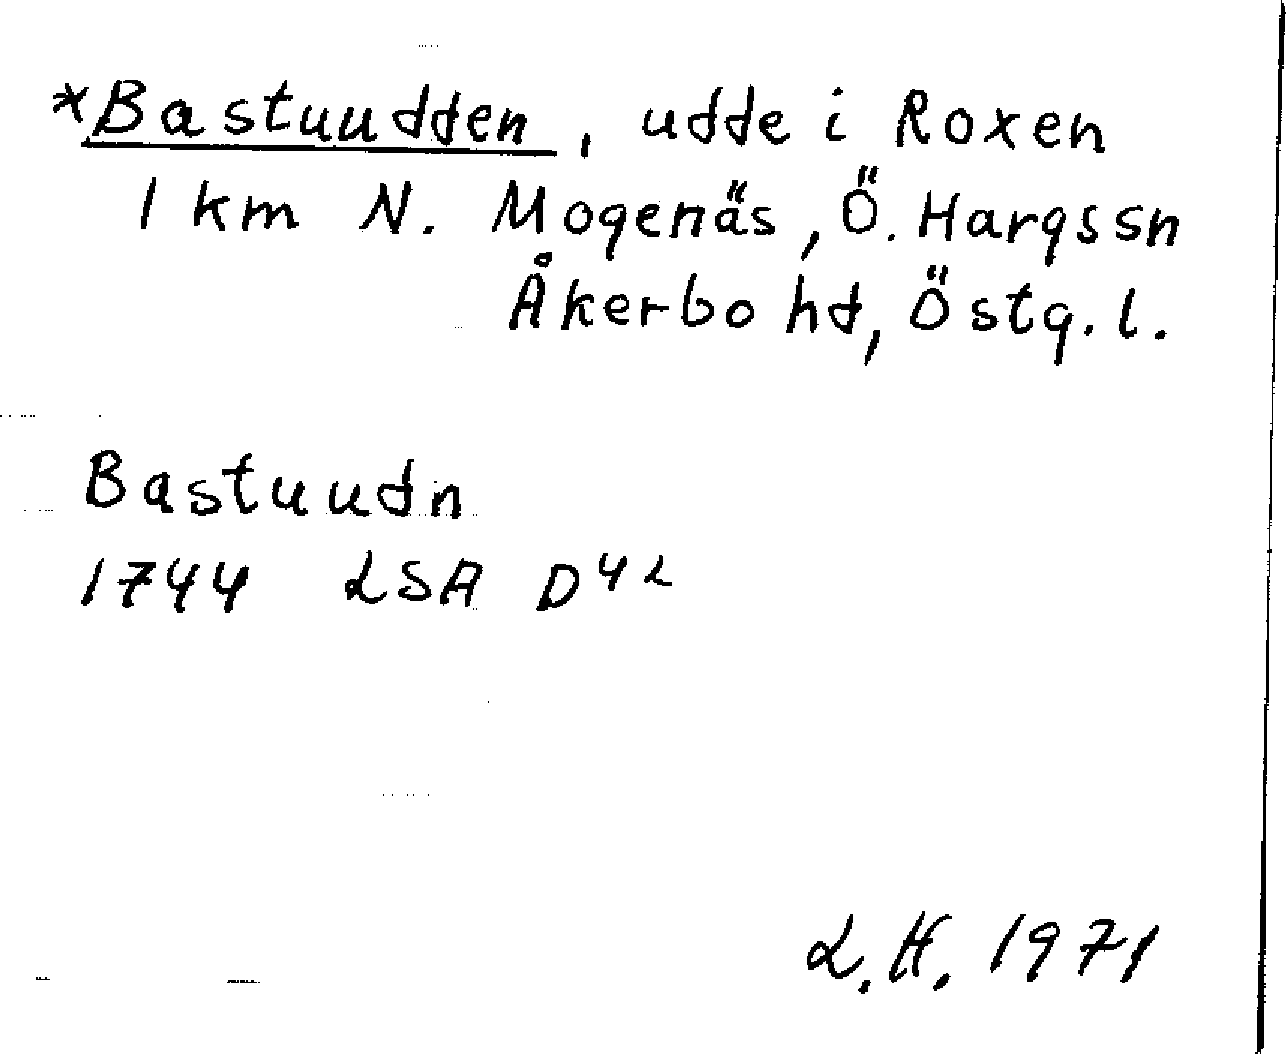 *Bastuudden, udde i Roxen
1 km N. Mogenäs, Ö. Hargssn
Åkerbo hd, Östg.l.
Bastuudn
1744 LSA D42
L.H. 1971